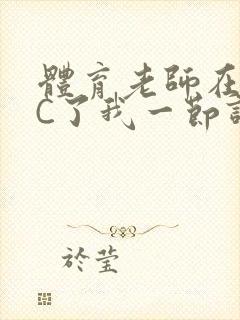 體育老師在
C了我一節
於莹